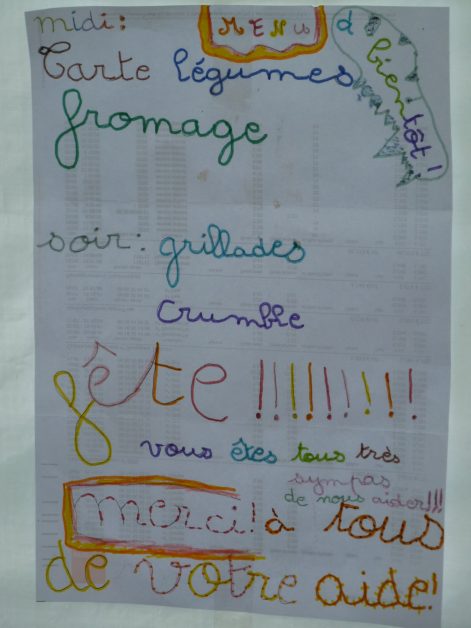 midi: MENU à bientôt!
Tarte légumes
fromage
soir: grillades
crumble
fête !!!!!!!!!
vous êtes tous très
sympas
de nous aider!!!
merci! à tous
de votre aide!